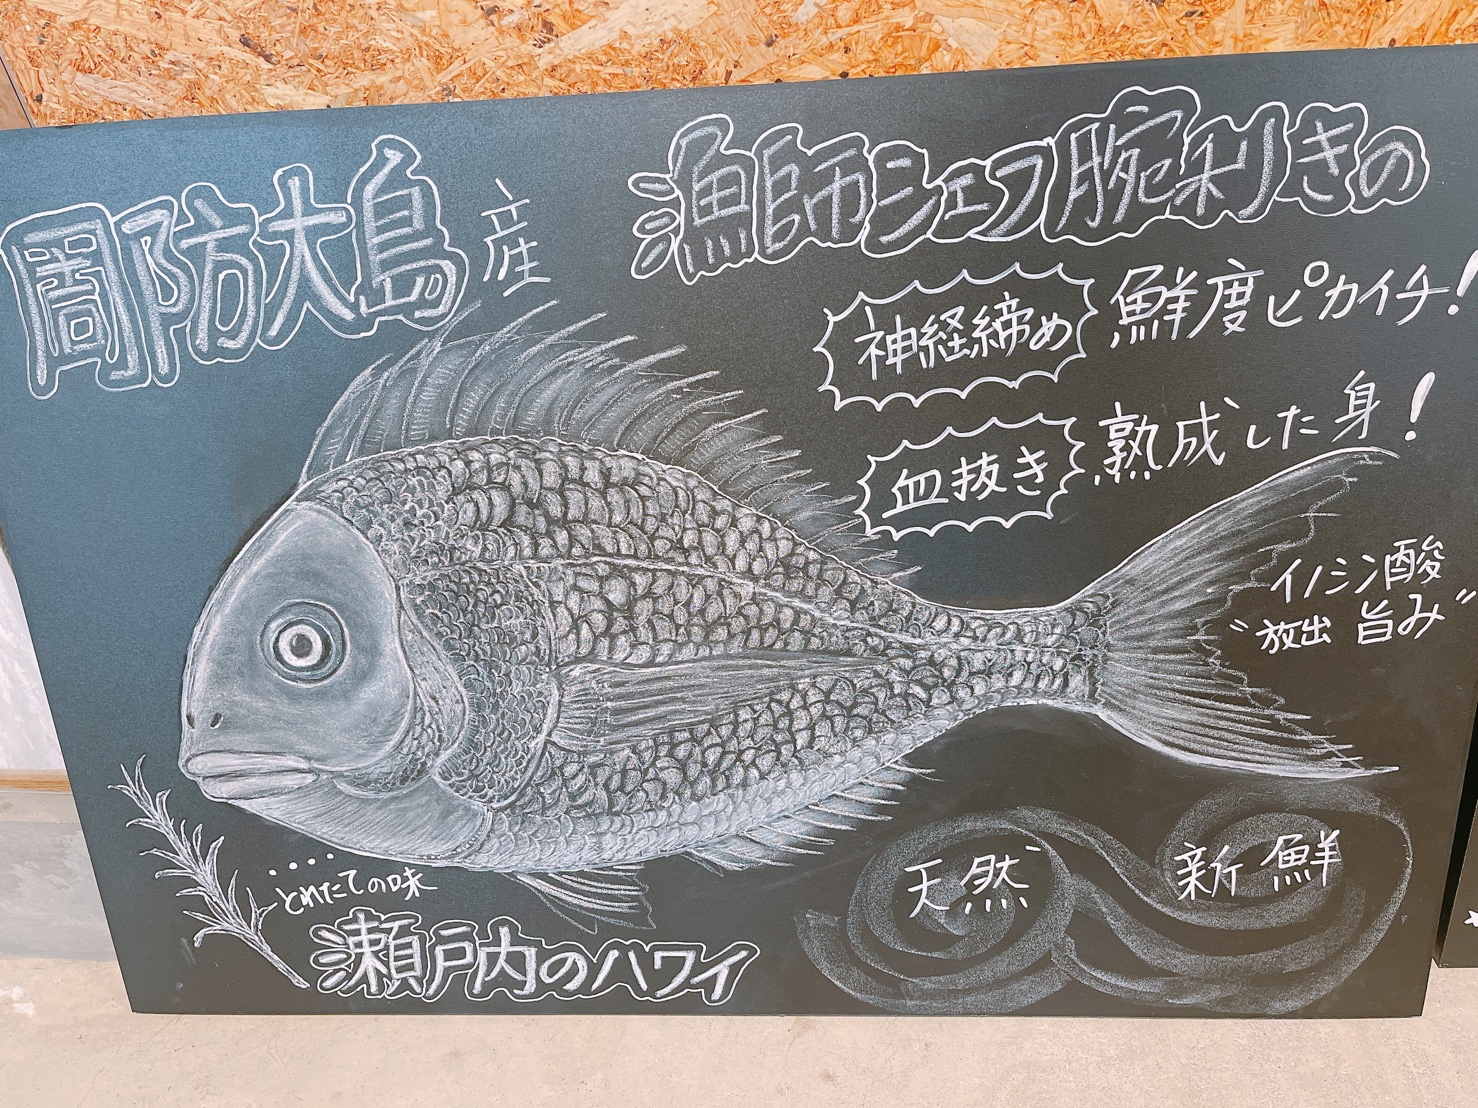 周防大島産
漁師シェフ腕利きの
神経締め 鮮度ピカイチ!
血抜き 熟成した身!
イノシン酸
"放出 旨み"
天然 新鮮
とれたての味
瀬戸内のハワイ